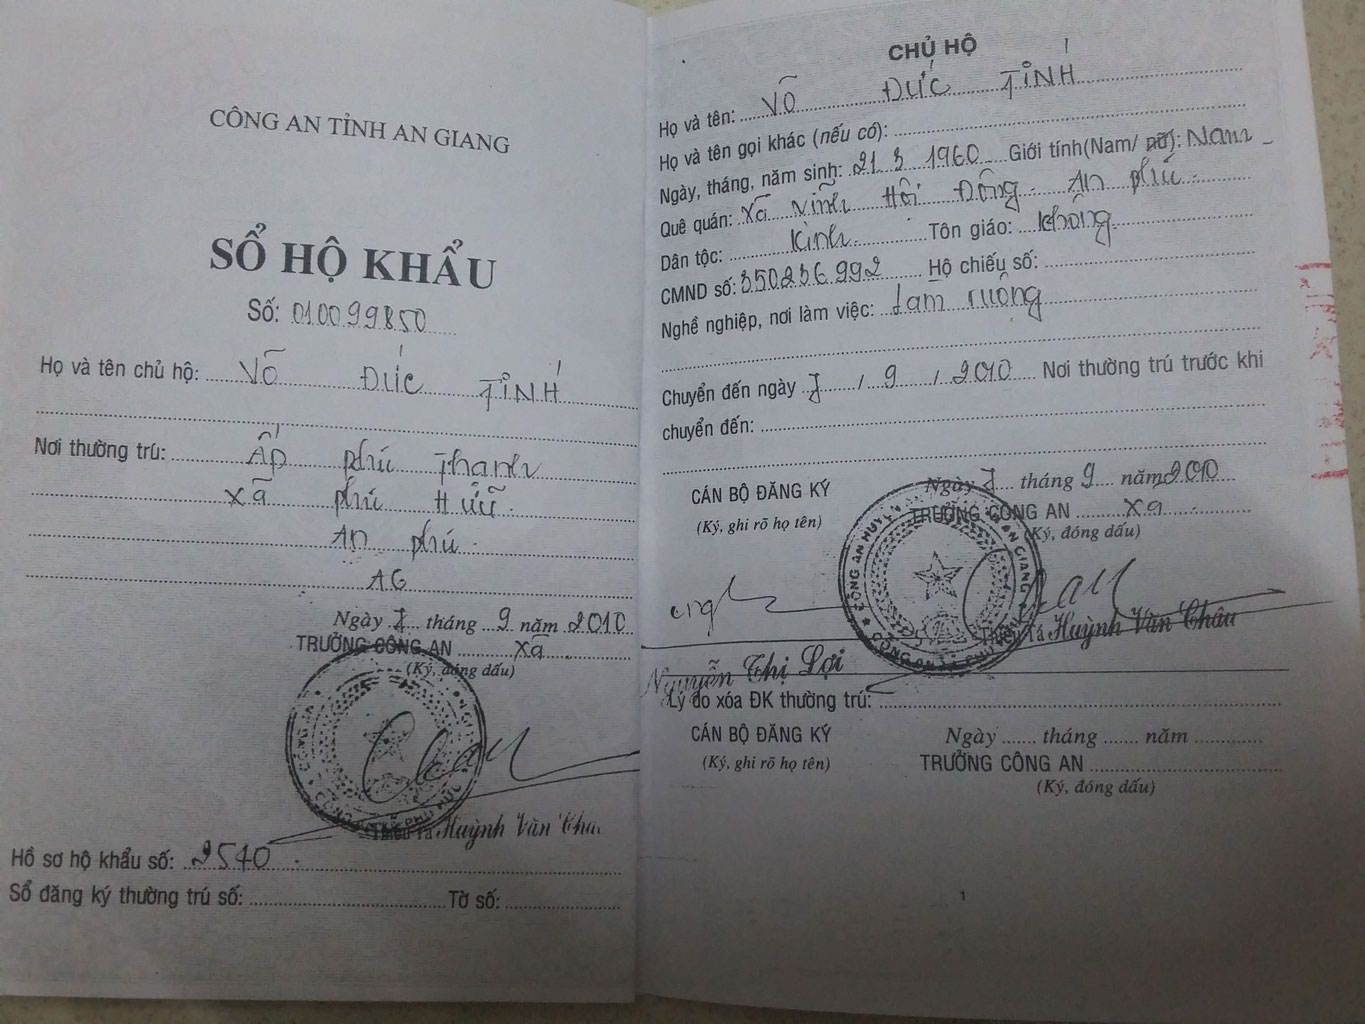 CÔNG AN TỈNH AN GIANG
SỔ HỘ KHẨU
Số: 010099850
Họ và tên chủ hộ: VÕ ĐỨC TỈNH
Nơi thường trú: Ấp phú Thạnh
Xã phú Hữu
An phú
AG
Ngày 7 tháng 9 năm 2010
TRƯỞNG CÔNG AN xã
(Ký, đóng dấu)
Thiếu tá Huỳnh Văn Châu
Hồ sơ hộ khẩu số: 2540
Sổ đăng ký thường trú số: Tờ số:
CHỦ HỘ
Họ và tên: VÕ ĐỨC TỈNH
Họ và tên gọi khác (nếu có):
Ngày, tháng, năm sinh: 21 3 1960 Giới tính(Nam/ nữ): Nam
Quê quán: Xã Vĩnh Hội Đông An phú
Dân tộc: Kinh Tôn giáo: không
CMND số: 350236992 Hộ chiếu số:
Nghề nghiệp, nơi làm việc: Làm ruộng
Chuyển đến ngày 7 / 9 / 2010 Nơi thường trú trước khi
chuyển đến:
Ngày 7 tháng 9 năm 2010
CÁN BỘ ĐĂNG KÝ TRƯỞNG CÔNG AN xã
(Ký, ghi rõ họ tên) (Ký, đóng dấu)
CÔNG AN HUYỆN AN GIANG
Thiếu tá Huỳnh Văn Châu
Nguyễn Thị Lợi
Lý do xóa ĐK thường trú:
CÁN BỘ ĐĂNG KÝ Ngày tháng năm
(Ký, ghi rõ họ tên) TRƯỞNG CÔNG AN
(Ký, đóng dấu)
1